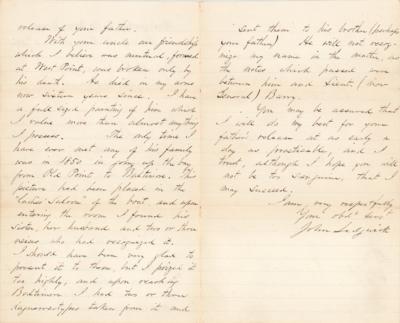 release of your father.
With your uncle my friendship
which I believe was mutual, formed
at West Point, was broken only by
his death. He died in my arms
now sixteen years since. I have
a full sized painting of him which
I value more than almost anything
I possess. The only time I
have ever met any of his family
was in 1850 in going up the bay
from Old Point to Baltimore. This
picture had been placed in the
"Ladies Saloon" of the boat, and upon
entering the room I found his
sister, her husband and two or three
nieces who had recognized it.
I should have been very glad to
present it to them, but I prized it
too highly, and upon reaching
Baltimore I had two or three
daguerreotypes taken from it and
sent them to his brother (perhaps
your father) He will not recog-
nize my name in the matter, as
the notes which passed were
between him and Lieut (now
General) Barry.
You may be assured that
I will do my best for your
father's release at as early a
day as practicable, and I
trust, although I hope you will
not be too sanguine, that I
may succeed.
I am, very respectfully
Your obdt servt
John Sedgwick